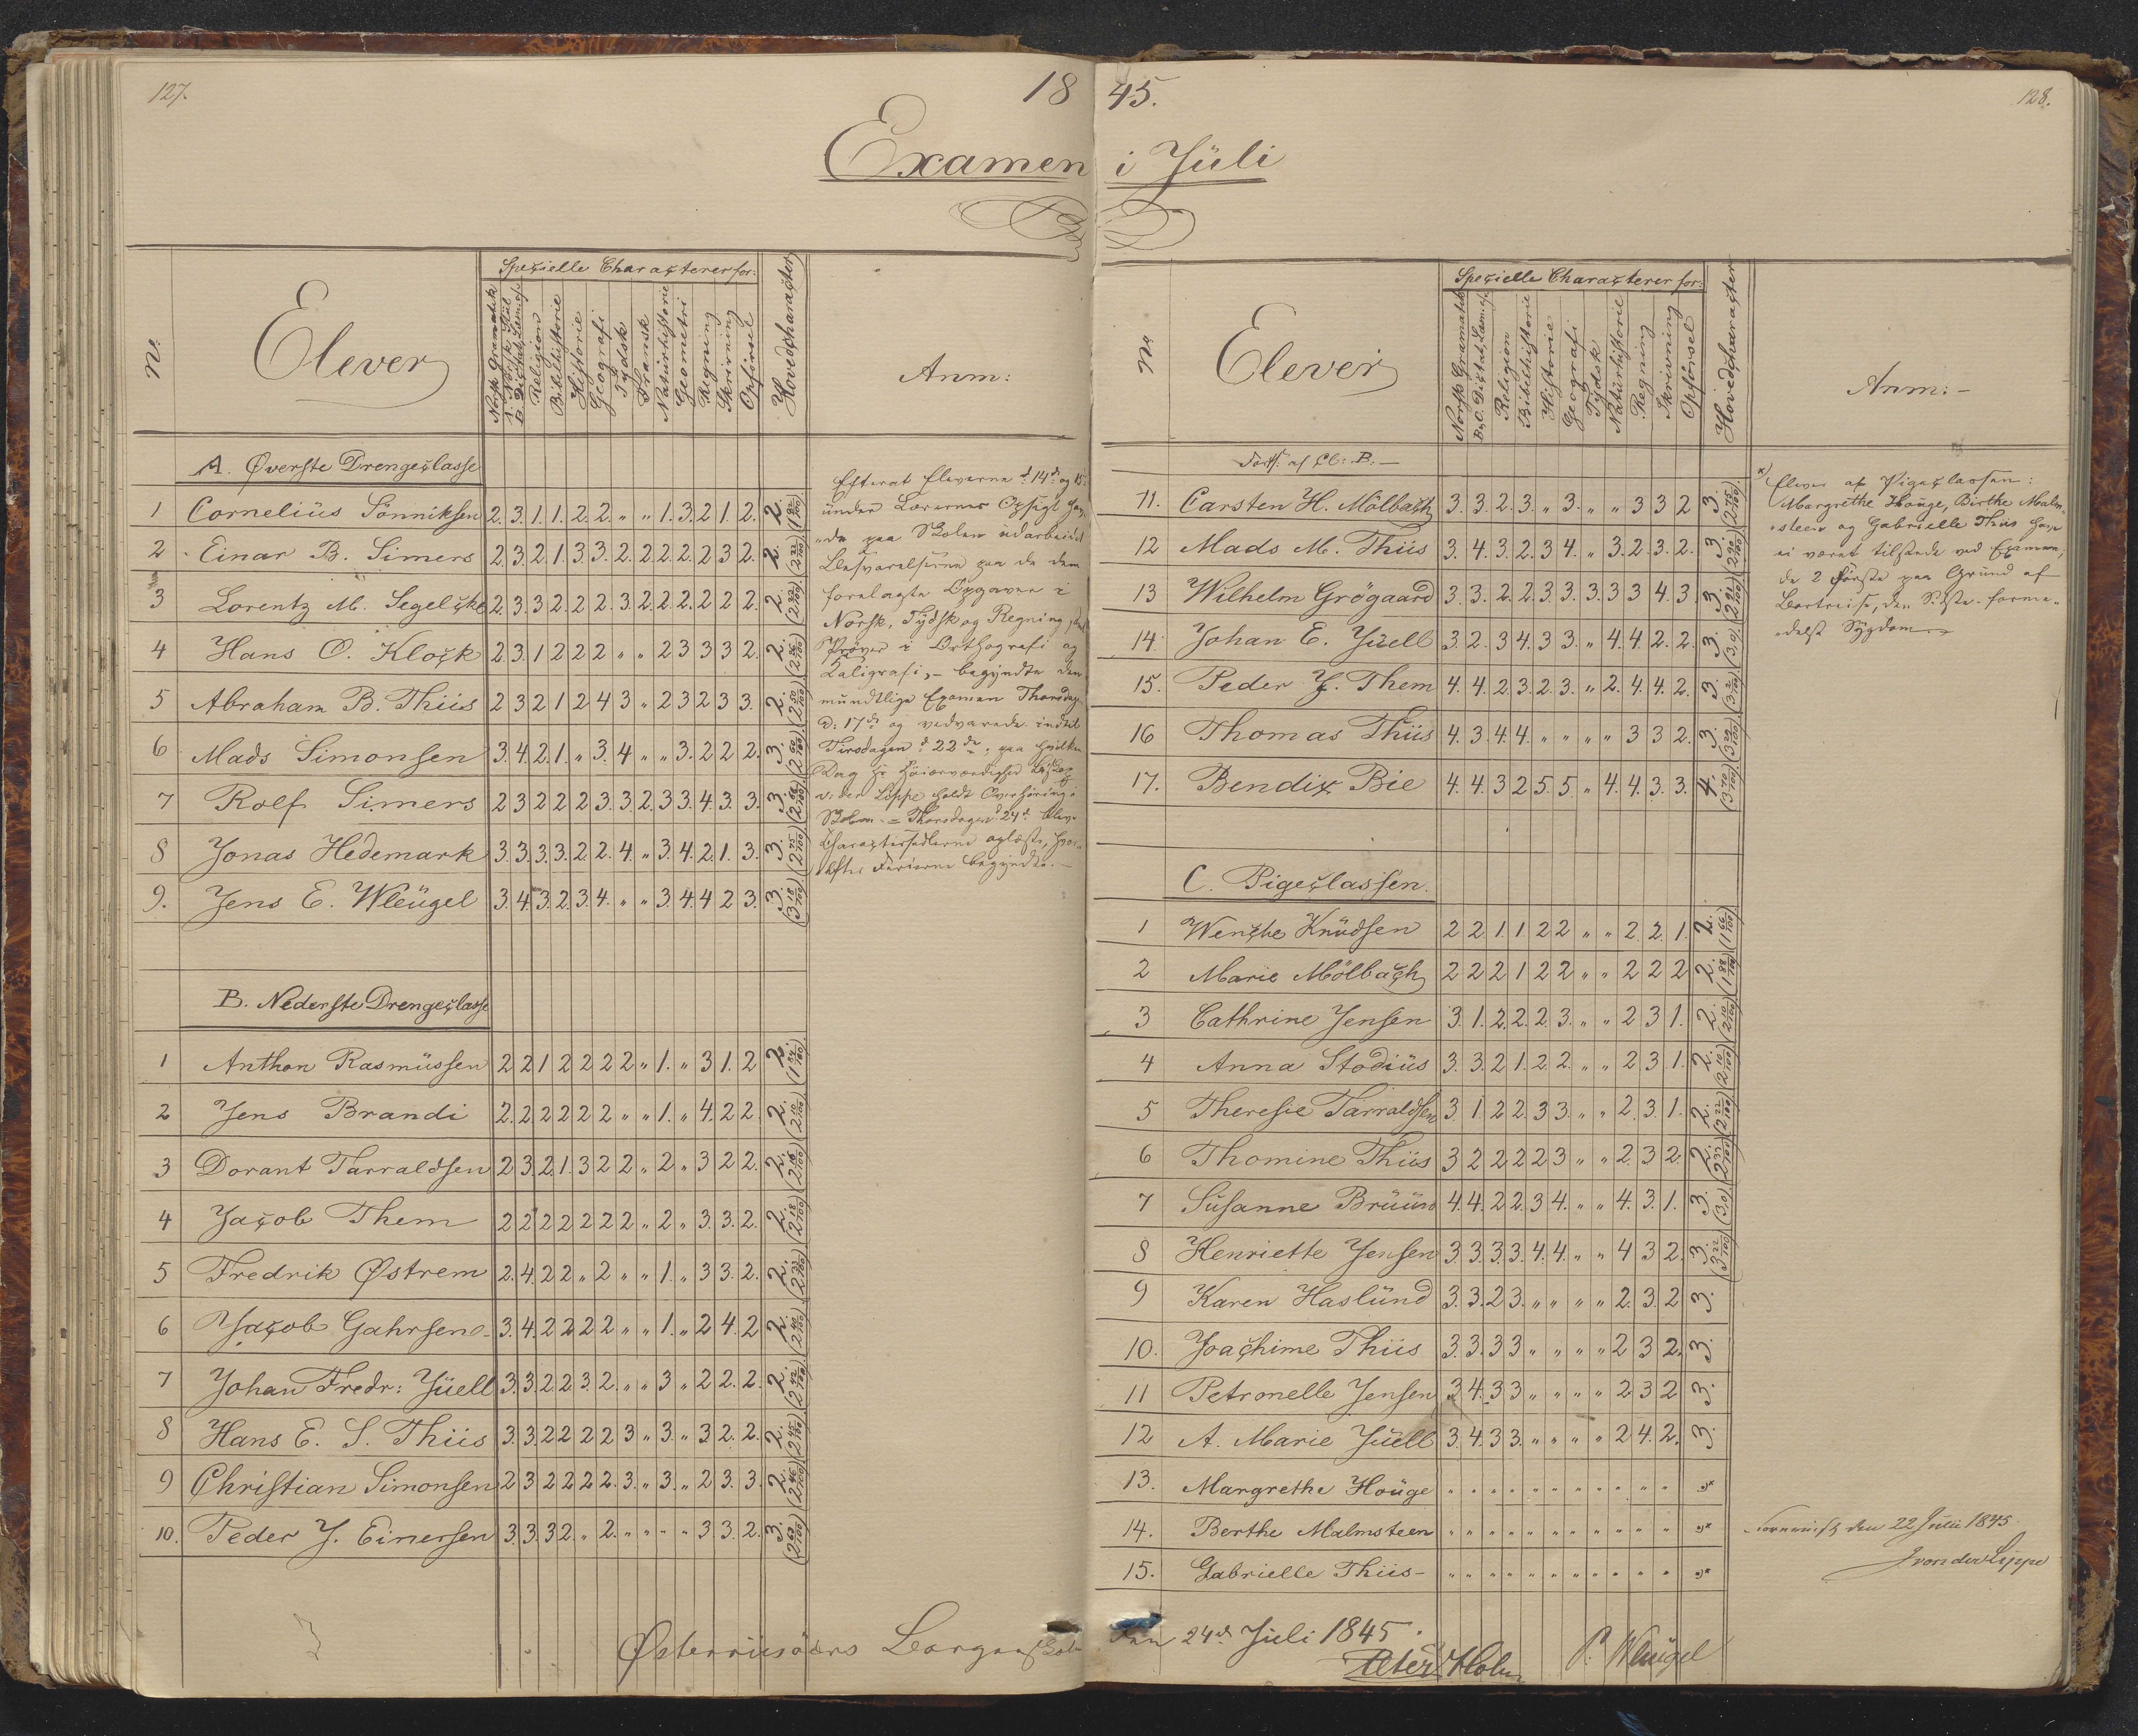 127.
1845.
128.
Examen i Jüli
No.
Elever
Speçielle Characterer for:
Norsk Gramatik
A. Norsk Stiil
B. Dictat, Læsn.
Religion
Bibelhistorie
Historie
Geografi
Tydsk
Fransk
Naturhistorie
Geometri
Regning
Skrivning
Opførsel
Hovedcharacter
Anm:
A. Øverste Drengeclasse
1 Cornelius Sönniksen 2. 3. 1. 1. 2. 2. " " 1. 3. 2 1. 2. 2. (1 92/100)
2 Einar B. Simers 2. 3 2. 1. 3. 3. 2. 2. 2. 2. 2 3 2. 2. (2 22/100)
3 Lorentz M. Segelcke 2. 3. 3 2. 2. 2. 3. 2. 2. 2. 2 2 2. 2.
4 Hans O. Klock 2. 3. 1 2 2 2 " " 2 3 3 3 2. 2.
5 Abraham B. Thiis 2 3 2 1 2 4 3 " 2 3 2 3 3. 2. (2 50/100)
6 Mads Simonsen 3. 4. 2. 1. " 3. 4 " " 3. 2 2 2. 3.
7 Rolf Simers 2 3 2 2 2 3. 3. 2. 3 3. 4. 3. 3. 3.
8 Jonas Hedemark 3. 3. 3. 3. 2. 2. 4. " 3. 4. 2. 1. 3. 3. (2 75/100)
9. Jens E. Wleugel 3. 4. 3. 2. 3. 4. " " 3. 4. 4 2 3. 3. (3 18/100)
Efterat Eleverne d. 14de og 15
under Lærernes Opsigt hav-
de paa Skolen udarbeidet
Besvarelserne paa de dem
forelagte Opgaver i
Norsk, Tydsk og Regning,
Prøver i Orthografi og
Kaligrafi, - begyndte den
mundtlige Examen Thorsdag
d: 17de og vedvarede indtil
Tirsdagen d. 22de, paa hvilken
Dag Hr Høiærværdighed Biskop
v: der Lippe holdt Overhøring i
Skolen. = Thorsdagen d. 24d. bleve
Charactersedlerne oplæste, hvor-
efter Ferierne begyndte. -
B. Nederste Drengeclasse
1 Anthon Rasmussen 2 2 1 2 2 2 2 " 1. " 3 1. 2 2.
2 Jens Brandi 2. 2 2 2 2 2 " " 1. " 4. 2 2. 2. (2 10/100)
3 Dorant Tarraldsen 2 3. 2. 1. 3 2 2. " 2 " 3 2 2. 2.
4 Jacob Them 2 2 2 2 2 2 2 " 2 " 3. 3. 2. 2. (2 18/100)
5 Fredrik Østrem 2. 4. 2 2 " 2 " " 1. " 3 3. 2. 2.
6 Jacob Gahrsen 3. 4. 2 2 2 2 " " 1. " 2 4. 2 2. (2 40/100)
7 Johan Fredr: Jüell 3. 3. 2. 2 3. 2. " " 3 " 2 2. 2. 2.
8 Hans E. S. Thiis 3. 3. 2 2 2 2 3 " 3. " 3 2. 2. 2. (2 45/100)
9 Christian Simonsen 2 3 2 2 2 2. 3. " 3. " 2 3. 3. 2. (2 46/100)
10. Peder J. Einersen 3. 3. 3 2. " 2. " " " " 3 3. 2. 3.
No
Elever
Speçielle Characterer for:
Norsk Gramatik
B. & C. Dictat, Læsn.
Religion
Bibelhistorie
Historie
Geografi
Tydsk
Naturhistorie
Regning
Skrivning
Opførsel
Hovedcharacter
Anm: -
Forts. af Cl: B: -
11. Carsten H. Mölbach 3. 3. 2 3. " 3. " " 3 3 2 3. (2 75/100)
12 Mads M. Thiis 3. 4. 3. 2. 3 4. " 3. 2. 3. 2. 3. (2 90/100)
13 Wilhelm Grögaard 3. 3. 2. 2. 3. 3. 3. 3 3 4. 3. 3.
14. Johan E. Jüell 3. 2. 3 4. 3 3. " 4. 4. 2. 2. 3. (3,0)
15. Peder J. Them 4. 4. 2. 3. 2. 3. " 2. 4. 4. 2. 3.
16 Thomas Thiis 4. 3. 4. 4. " " " " 3 3 2. 3.
17. Bendix Bie 4. 4. 3 2 5. 5. " 4. 4. 3. 3. 4. (3 70/100)
C. Pigeclassen.
1 Wenche Knudsen 2 2 1. 1 2 2 " " 2 2 1. 2. (1 66/100)
2 Marie Mölbach 2 2 2 1 2 2 " " 2 2 2 2. (1 88/100)
3 Cathrine Jensen 3. 1. 2. 2. 2. 3. " " 2 3 1. 2. (2 10/100)
4 Anna Stodius 3. 3. 2 1. 2 2. " " 2 3 1. 2. (2 10/100)
5 Theresie Tarraldsen 3 1. 2 2 3 3. " " 2. 3. 1. 2. (2 22/100)
6 Thomine Thiis 3 2 2 2 2 3 " " 2 3 2. 2. (2 33/100)
7 Susanne Brüün 4. 4. 2 2. 3 4. " " 4. 3. 1. 3. (3,0)
8 Henriette Jensen 3. 3. 3. 3. 4. 4. " " 4 3 2. 3. (3 22/100)
9 Karen Haslünd 3. 3. 2 3. " " " " 2. 3. 2 3.
10. Joachime Thiis 3. 3. 3 3 " " " " 2 3 2. 3.
11 Petronelle Jensen 3 4. 3 3 " " " " 2 3 2 3.
12 A. Marie Jüell 3. 4. 3 3. " " " " 2 4. 2. 3.
13. Margrethe Houge " " " " " " " " " " " "*
14. Berthe Malmsteen " " " " " " " " " " " "*
15. Gabrielle Thiis - " " " " " " " " " " " "*
*) Elever af Pigeclassen:
Margrethe Houge, Birthe Malm-
steen og Gabrielle Thiis have
ei været tilstede ved Examen,
de 2 første paa Grund af
Bortreise, den Sidste forme-
delst Sygdom.
den 22 Julii 1845
J von der Lippe
Østerriisöers Borgerskole den 24de Juli 1845.
Peter Holm P. Wleugel